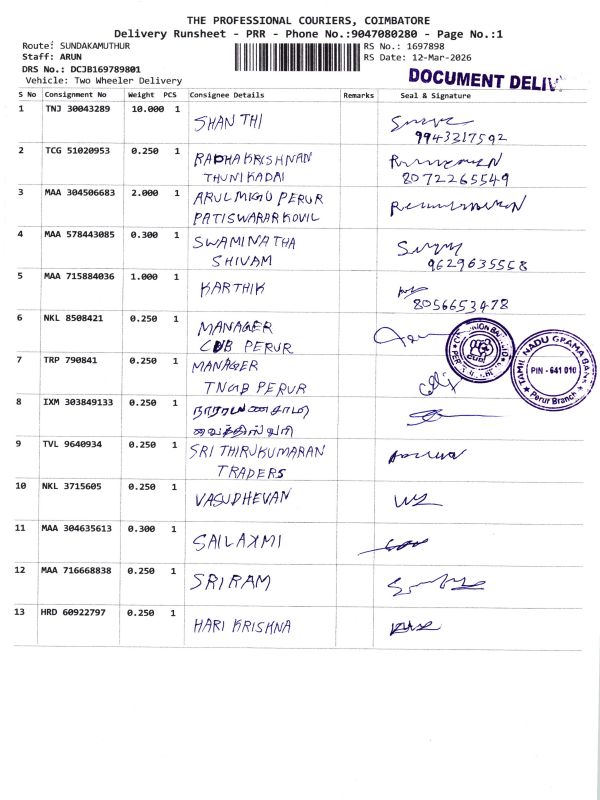 THE PROFESSIONAL COURIERS, COIMBATORE
Delivery Runsheet - PRR - Phone No.:9047080280 - Page No.:1
Route: SUNDAKAMUTHUR
RS No.: 1697898
Staff: ARUN
RS Date: 12-Mar-2026
DRS No.: DCJB169789801
Vehicle: Two Wheeler Delivery
DOCUMENT DELIV
S No Consignment No Weight PCS Consignee Details Remarks Seal & Signature
1 TNJ 30043289 10.000 1 SHANTHI
9943317592
2 TCG 51020953 0.250 1 RADHAKRISHNAN
THUNIKADAI
8072265549
3 MAA 304506683 2.000 1 ARULMIGU PERUR
PATISWARARKOVIL
4 MAA 578443085 0.300 1 SWAMINATHA
SHIVAM
9629635558
5 MAA 715884036 1.000 1 KARTHIK
8056653478
6 NKL 8508421 0.250 1 MANAGER
CUB PERUR
7 TRP 790841 0.250 1 MANAGER
TNGB PERUR
TAMIL NADU GRAMA BANK
PIN - 641 010
Perur Branch
8 IXM 303849133 0.250 1 நாராயணசாமி
9 TVL 9640934 0.250 1 SRI THIRUKUMARAN
TRADERS
10 NKL 3715605 0.250 1 VASUDHEVAN
11 MAA 304635613 0.300 1 SAILAXMI
12 MAA 716668838 0.250 1 SRIRAM
13 HRD 60922797 0.250 1 HARI KRISHNA